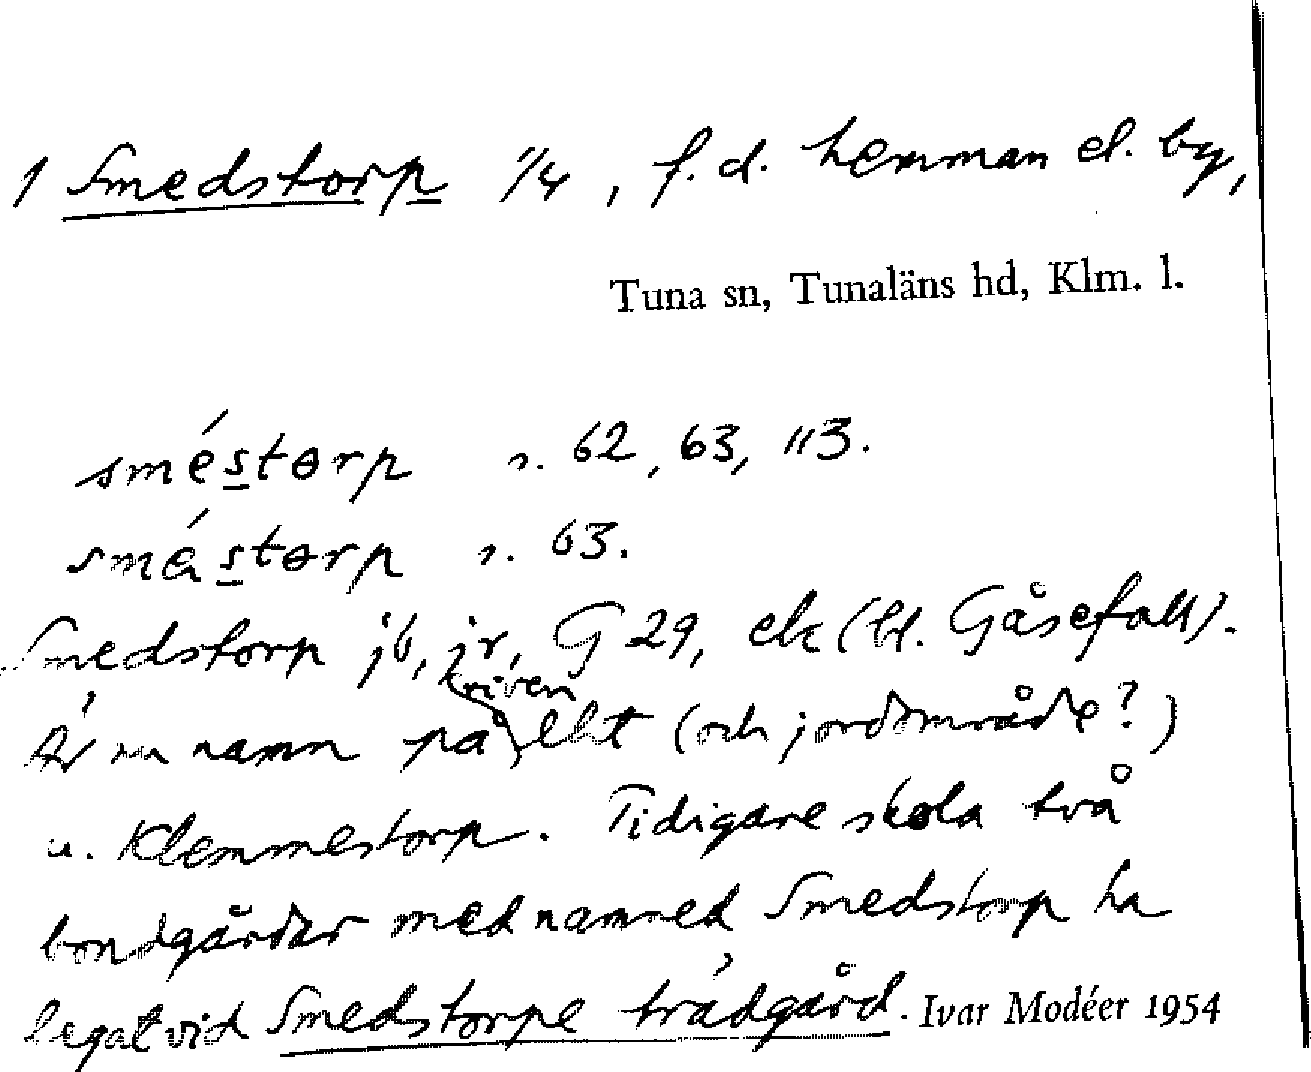 1 Smedstorp 1/4, f. d. hemman el. by,
Tuna sn, Tunaläns hd, Klm. l.
sméstorp s. 62, 63, 113.
sméstorp s. 63.
Smedstorp jb, jr, G 29, ek (bl. Gåsefall).
Är nu namn på riven lht (och jordområde?)
u. Klemmestorp. Tidigare skola två
bondgårdar med namned Smedstorp ha
legat vid Smedstorpe trädgård. Ivar Modéer 1954